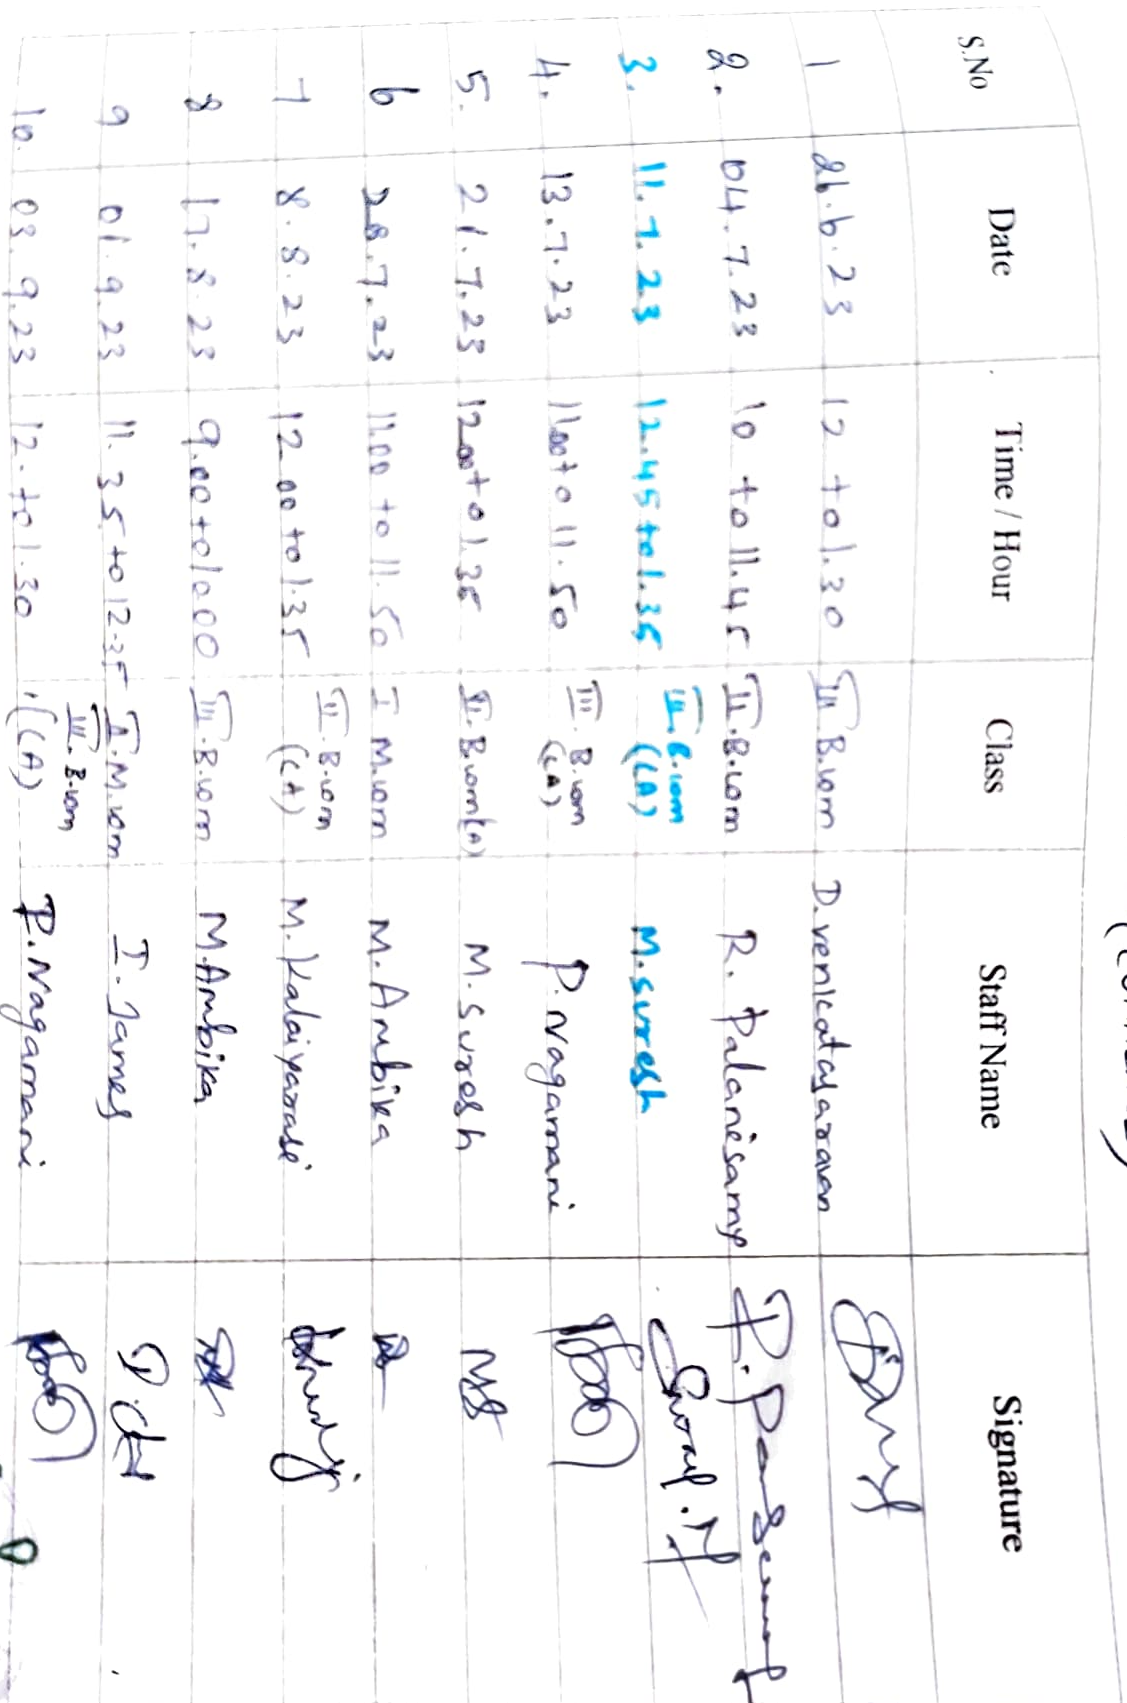 S.No Date Time / Hour Class Staff Name Signature
1 26.6.23 12 to 1.30 III B.com D. venkatasaravan
2. 04.7.23 10 to 11.45 II.B.com R. Palanisamy
3. 11.7.23 12.45 to 1.35 III.B.com (CA) M. suresh Suresh.M
4. 13.7.23 11.00 to 11.50 III B.com (CA) P. Nagamani
5. 21.7.23 12.00 to 1.35 II.B.com(CA) M. Suresh MS
6 28.7.23 11.00 to 11.50 I M.com M. Ambika
7 8.8.23 12.00 to 1.35 II.B.com (CA) M. Kalaiyarasi
8 17.8.23 9.00 to 10.00 III.B.com M. Ambika
9 01.9.23 11.35 to 12.35 I.M.com I. James
10. 03.9.23 12. to 1.30 III.B.com (CA) P. Nagamani